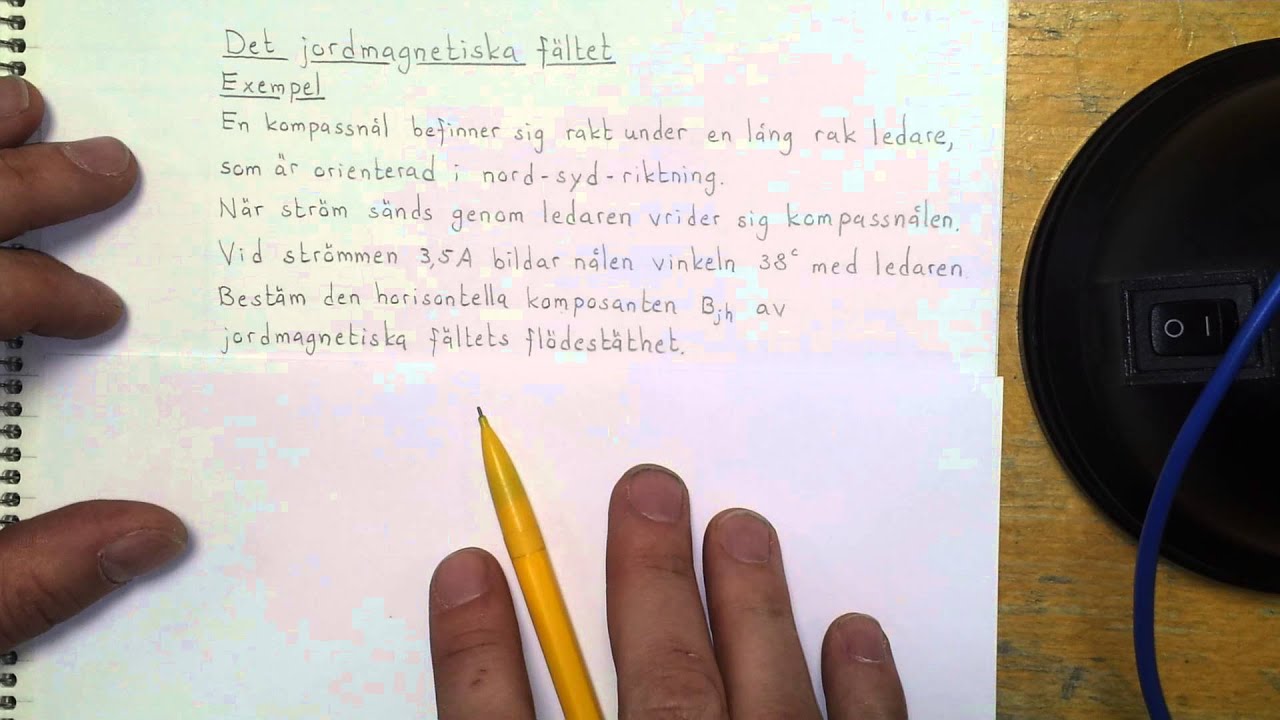 Det jordmagnetiska fältet
Exempel
En kompassnål befinner sig rakt under en lång rak ledare,
som är orienterad i nord-syd-riktning.
När ström sänds genom ledaren vrider sig kompassnålen.
Vid strömmen 3,5A bildar nålen vinkeln 38° med ledaren.
Bestäm den horisontella komposanten Bjh av
jordmagnetiska fältets flödestäthet.